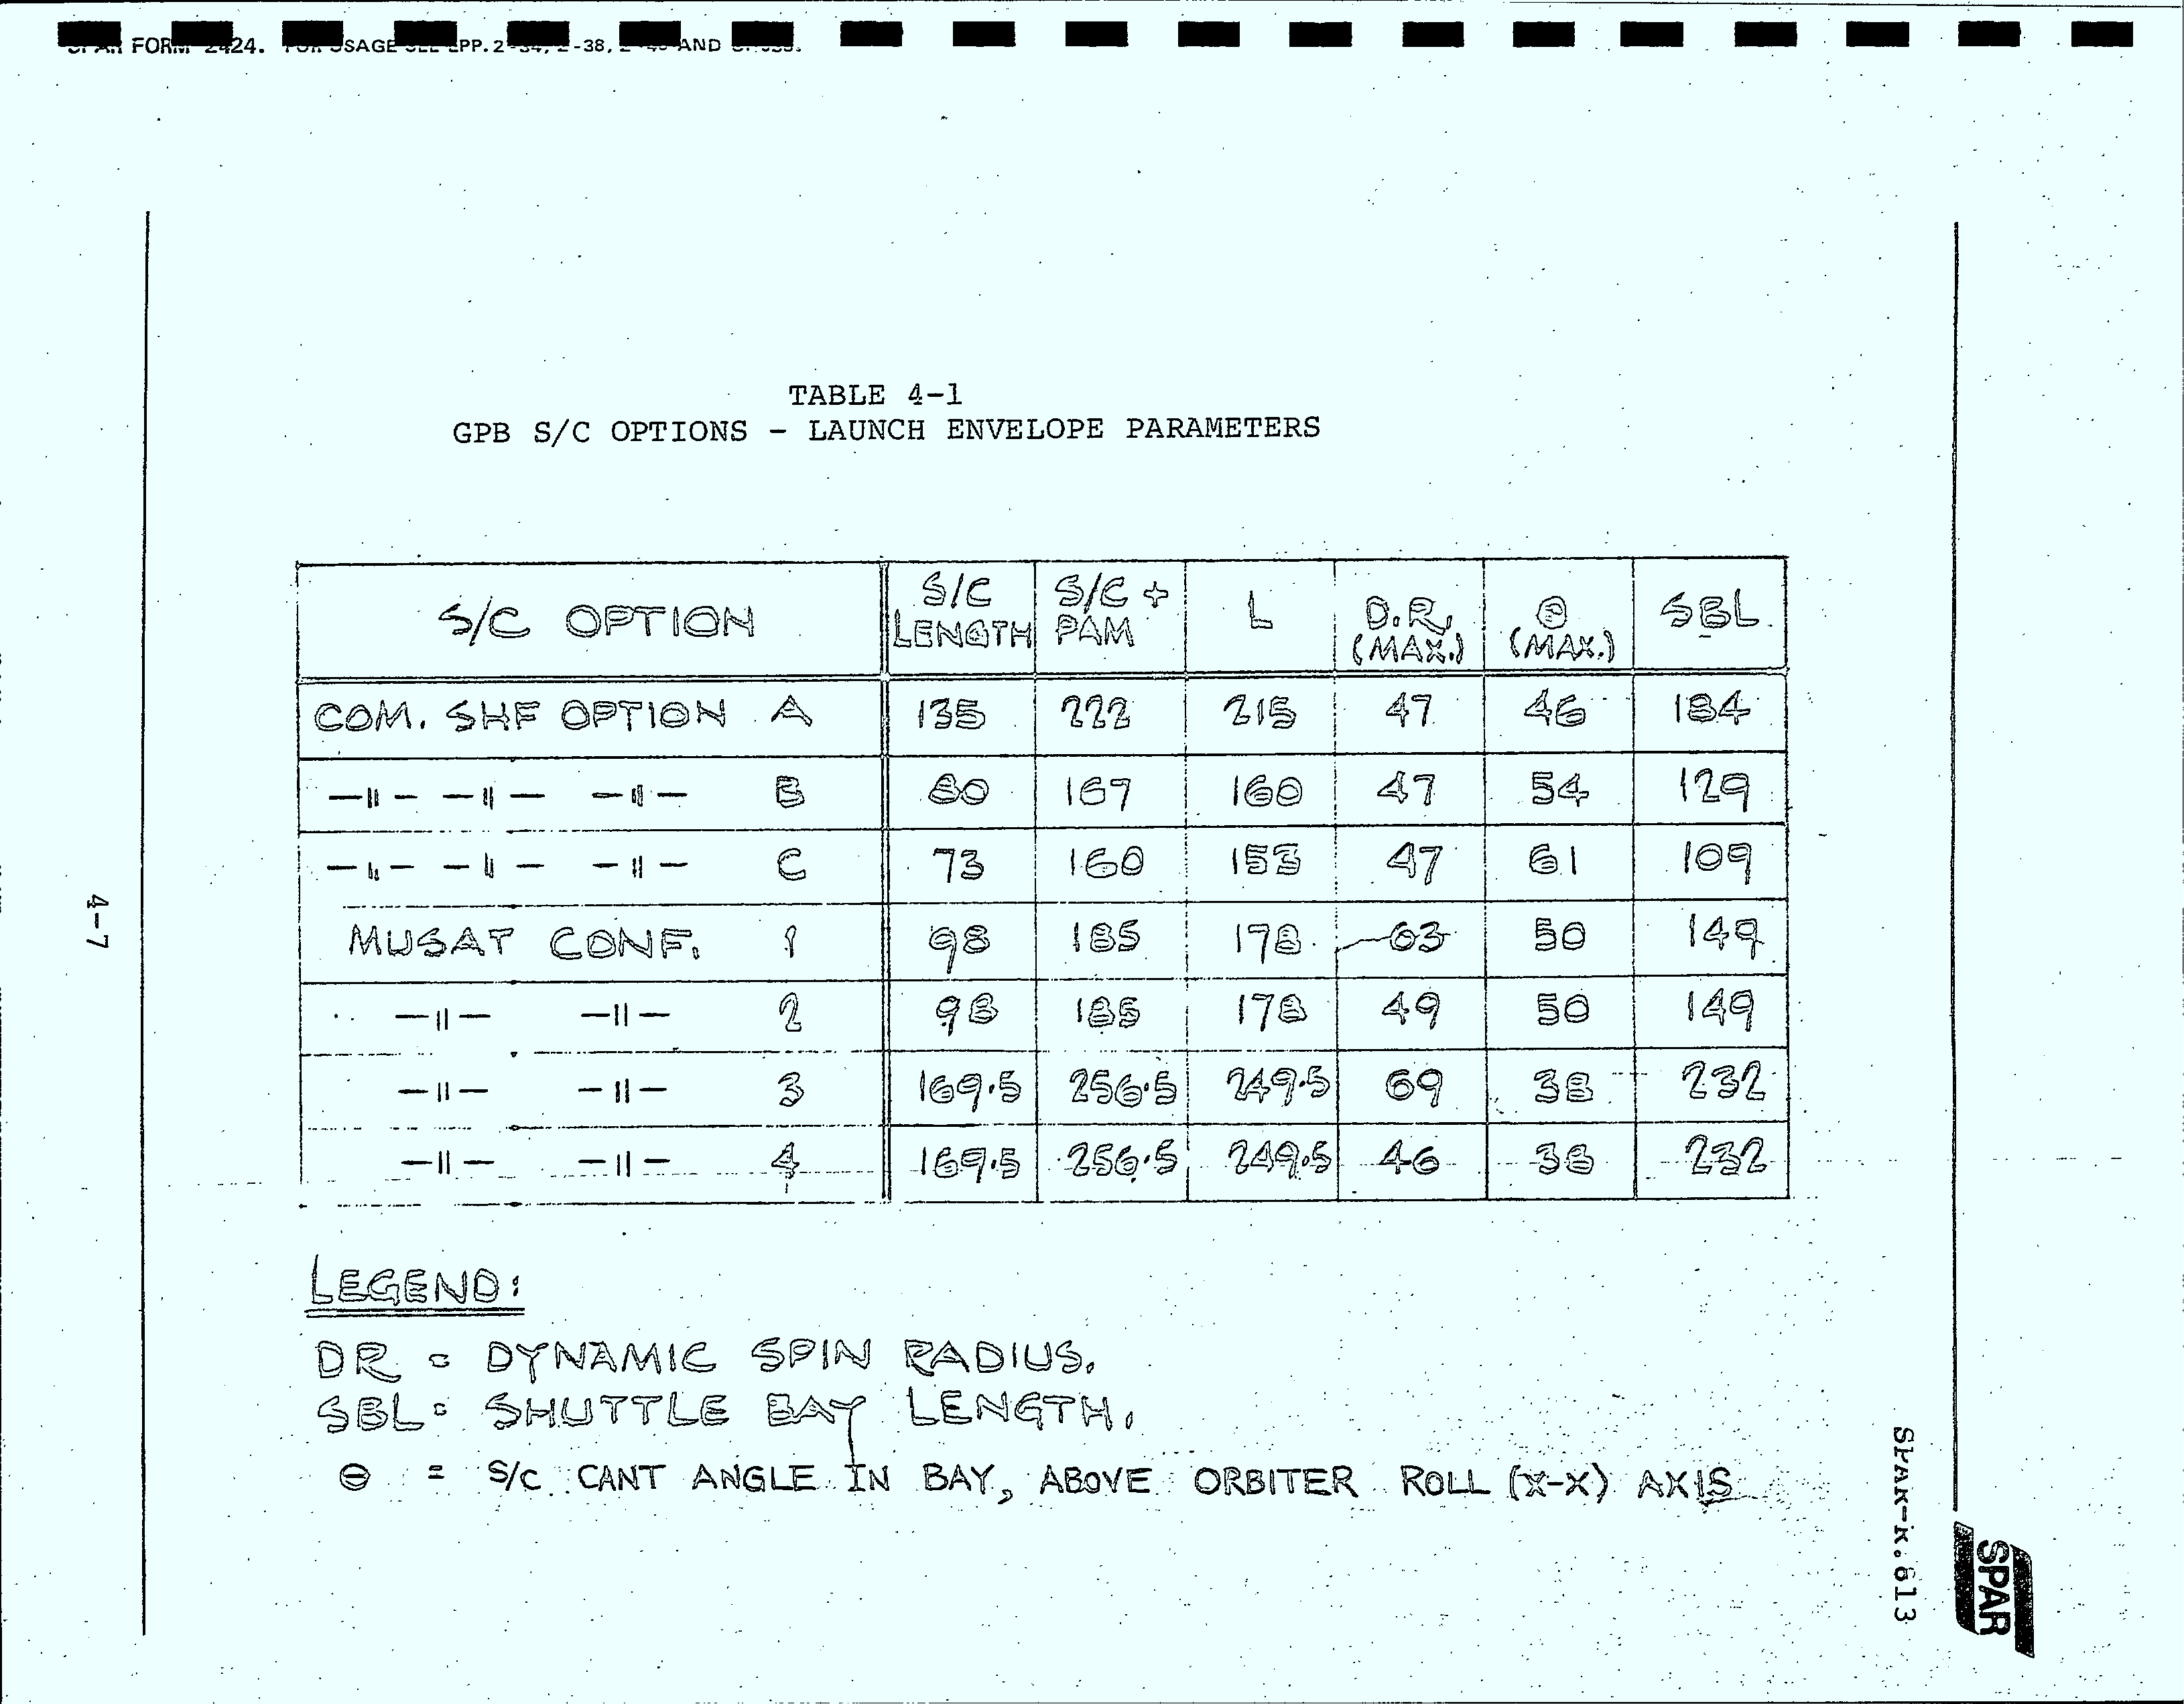 FORM 2424. USAGE SEE EPP. 2-34, 2-38, AND
TABLE 4-1
GPB S/C OPTIONS - LAUNCH ENVELOPE PARAMETERS
S/C OPTION S/C LENGTH S/C + PAM L D.R. (MAX.) Θ (MAX.) SBL
COM. SHF OPTION A 135 222 215 47 46 184
—〃— —〃— —〃— B 80 167 160 47 54 129
—〃— —〃— —〃— C 73 160 153 47 61 109
MUSAT CONF. 1 98 185 178 63 50 149
—〃— —〃— 2 98 185 178 49 50 149
—〃— —〃— 3 169.5 256.5 249.5 69 38 232
—〃— —〃— 4 169.5 256.5 249.5 46 38 232
LEGEND:
DR = DYNAMIC SPIN RADIUS.
SBL = SHUTTLE BAY LENGTH.
Θ = S/C CANT ANGLE IN BAY, ABOVE ORBITER ROLL (X-X) AXIS
4-7
SPAR-R.813
SPAR